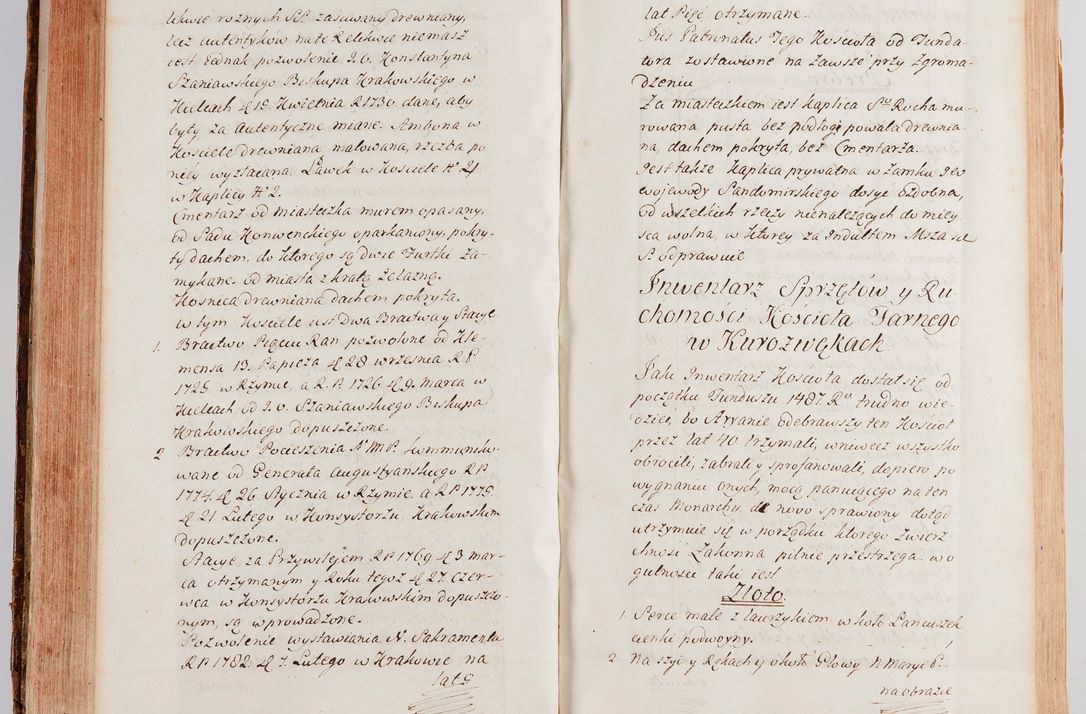 likwie roznych SS. zasuwany drewniany,
lecz autentykow na te Relikwie niemasz
iest Iednak pozwolenie J.O. Konstantyna
Szaniawskiego Biskupa Krakowskiego w
Kielcach d. 18 Kwietnia R. 1730. dane, aby
były za autentyczne miane. Ambona w
Kosciele drewniana malowana, rzezba po
niey wyzłacana. Ławek w Kosciele No 21
w Kaplicy No 2.
Cmentarz od miasteczka murem opasany,
od Sadu Konwenckiego oparkaniony, pokry-
ty dachem, do ktorego są dwie Furtki za-
mykane. od miasta z kratą żelazną.
Kosnica drewniana dachem pokryta.
w tym Kosciele iest Dwa Bractwa y Stacye
1. Bractwo Pięciu Ran pozwolone od Kle-
mensa 13. Papieża d. 28 września R. P.
1725. w Rzymie, a R. P. 1726 d. 9. Marca w
Kielcach od J. O. Szaniawskiego Biskupa
Krakowskiego dopuszczone.
2 Bractwo Pocieszenia N. M. P. kommuniko-
wane od Generała Augustyańskiego R. P.
1774. d. 26 Stycznia w Rzymie. a R. P. 1775
d. 21 Lutego w Konsystorzu Krakowskim
dopuszczone.
Stacye za Przywilejem R. P. 1769 d. 3 mar-
ca otrzymanym y Roku tegoż d. 27. Czer-
wca w Konsystorzu Krakowskim dopuszczo-
nym, są wprowadzone.
Pozwolenie wystawiania N. Sakramentu
R. P. 1782. d. 7. Lutego w Krakowie na
lat 5
lat Pięć otrzymane.
Jus Patronatus Tego Kościoła od Funda-
tora zostawione na zawsze przy zgroma-
dzeniu
Za miasteczkiem iest kaplica Sgo Rocha mu-
rowana pusta bez podłogi powała drewnia-
na, dachem pokryta, bez Cmentarza.
Iest także Kaplica prywatna w Zamku JW
wojewody Sandomirskiego dosyć ozdobna,
od wszelkich rzeczy nienależących do miey
sca wolna, w ktorey za Indultem Msza se
S. odprawuie
Inwentarz Sprzętów y Ru-
chomości Kościoła Farnego
w Kurozwękach.
Jaki Inwentarz Koscioła dostał się od
początku Funduszu 1487. Ru trudno wie-
dzieć, bo Aryanie odebrawszy ten Kościoł
przez lat 40 trzymali, wniwecz wszystko
obrocili, zabrali y sprofanowali, dopiero po
wygnaniu onych, mocą panuiącego na ten
czas Monarchy, de novo sprawiony dotąd
utrzymuie się w porządku ktorego Zwierz-
chność Zakonna pilnie przestrzega. wo
gulności taki iest
Złoto.
1. Serce małe z laurzykiem w koło Łancuzek
cienki podwoyny.
2 Na szyi y Rękach y około Głowy N. Maryi P.
na obrazie